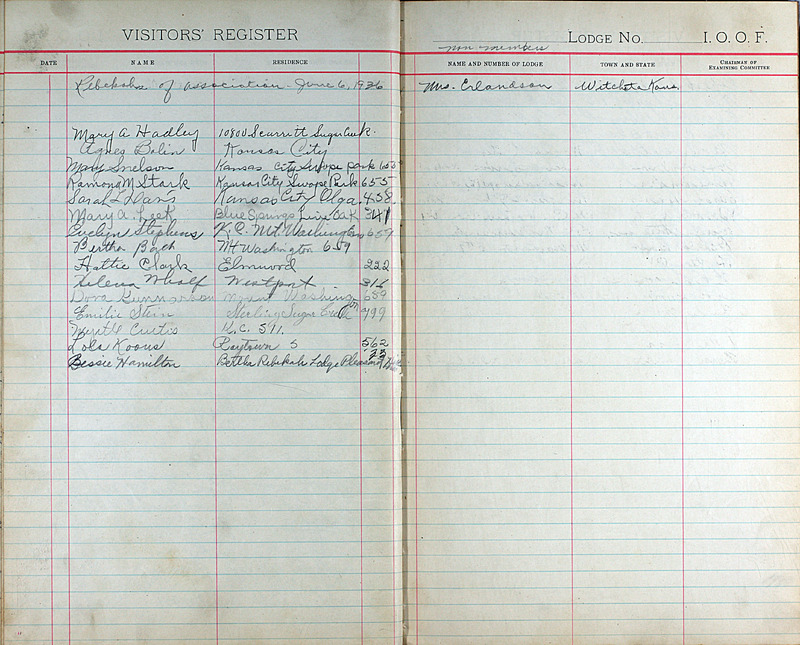 VISITORS' REGISTER
DATE NAME RESIDENCE
Rebekahs of association - June 6, 1936
Mary A Hadley 10800 Scarritt Sugar Creek.
Agnes Bolin Kansas City
Mary Snelson Kansas City Swope Park 655
Ramona M Stark Kansas City Swope Park 655
Sarah L Davis Kansas City Olga. 458
Mary A. Leek Blue Springs Live Oak 341
Evelyn Stephens K.C. Mt. Washington 659
Bertha Bach Mt Washington 659
Hattie Clark Elmwood 222
Selena Whalf Westport 316
Dora Gunnarson Mount Washington 659
Emilie Stein Sterling Sugar Creek 799
Myrtle Curtis K.C. 511.
Lola Koons Raytown S 562
Bessie Hamilton Bertha Rebekah Lodge Pleasant 23
non members LODGE NO. I. O. O. F.
NAME AND NUMBER OF LODGE TOWN AND STATE CHAIRMAN OF EXAMINING COMMITTEE
Mrs. Erlandson Witchita Kans.